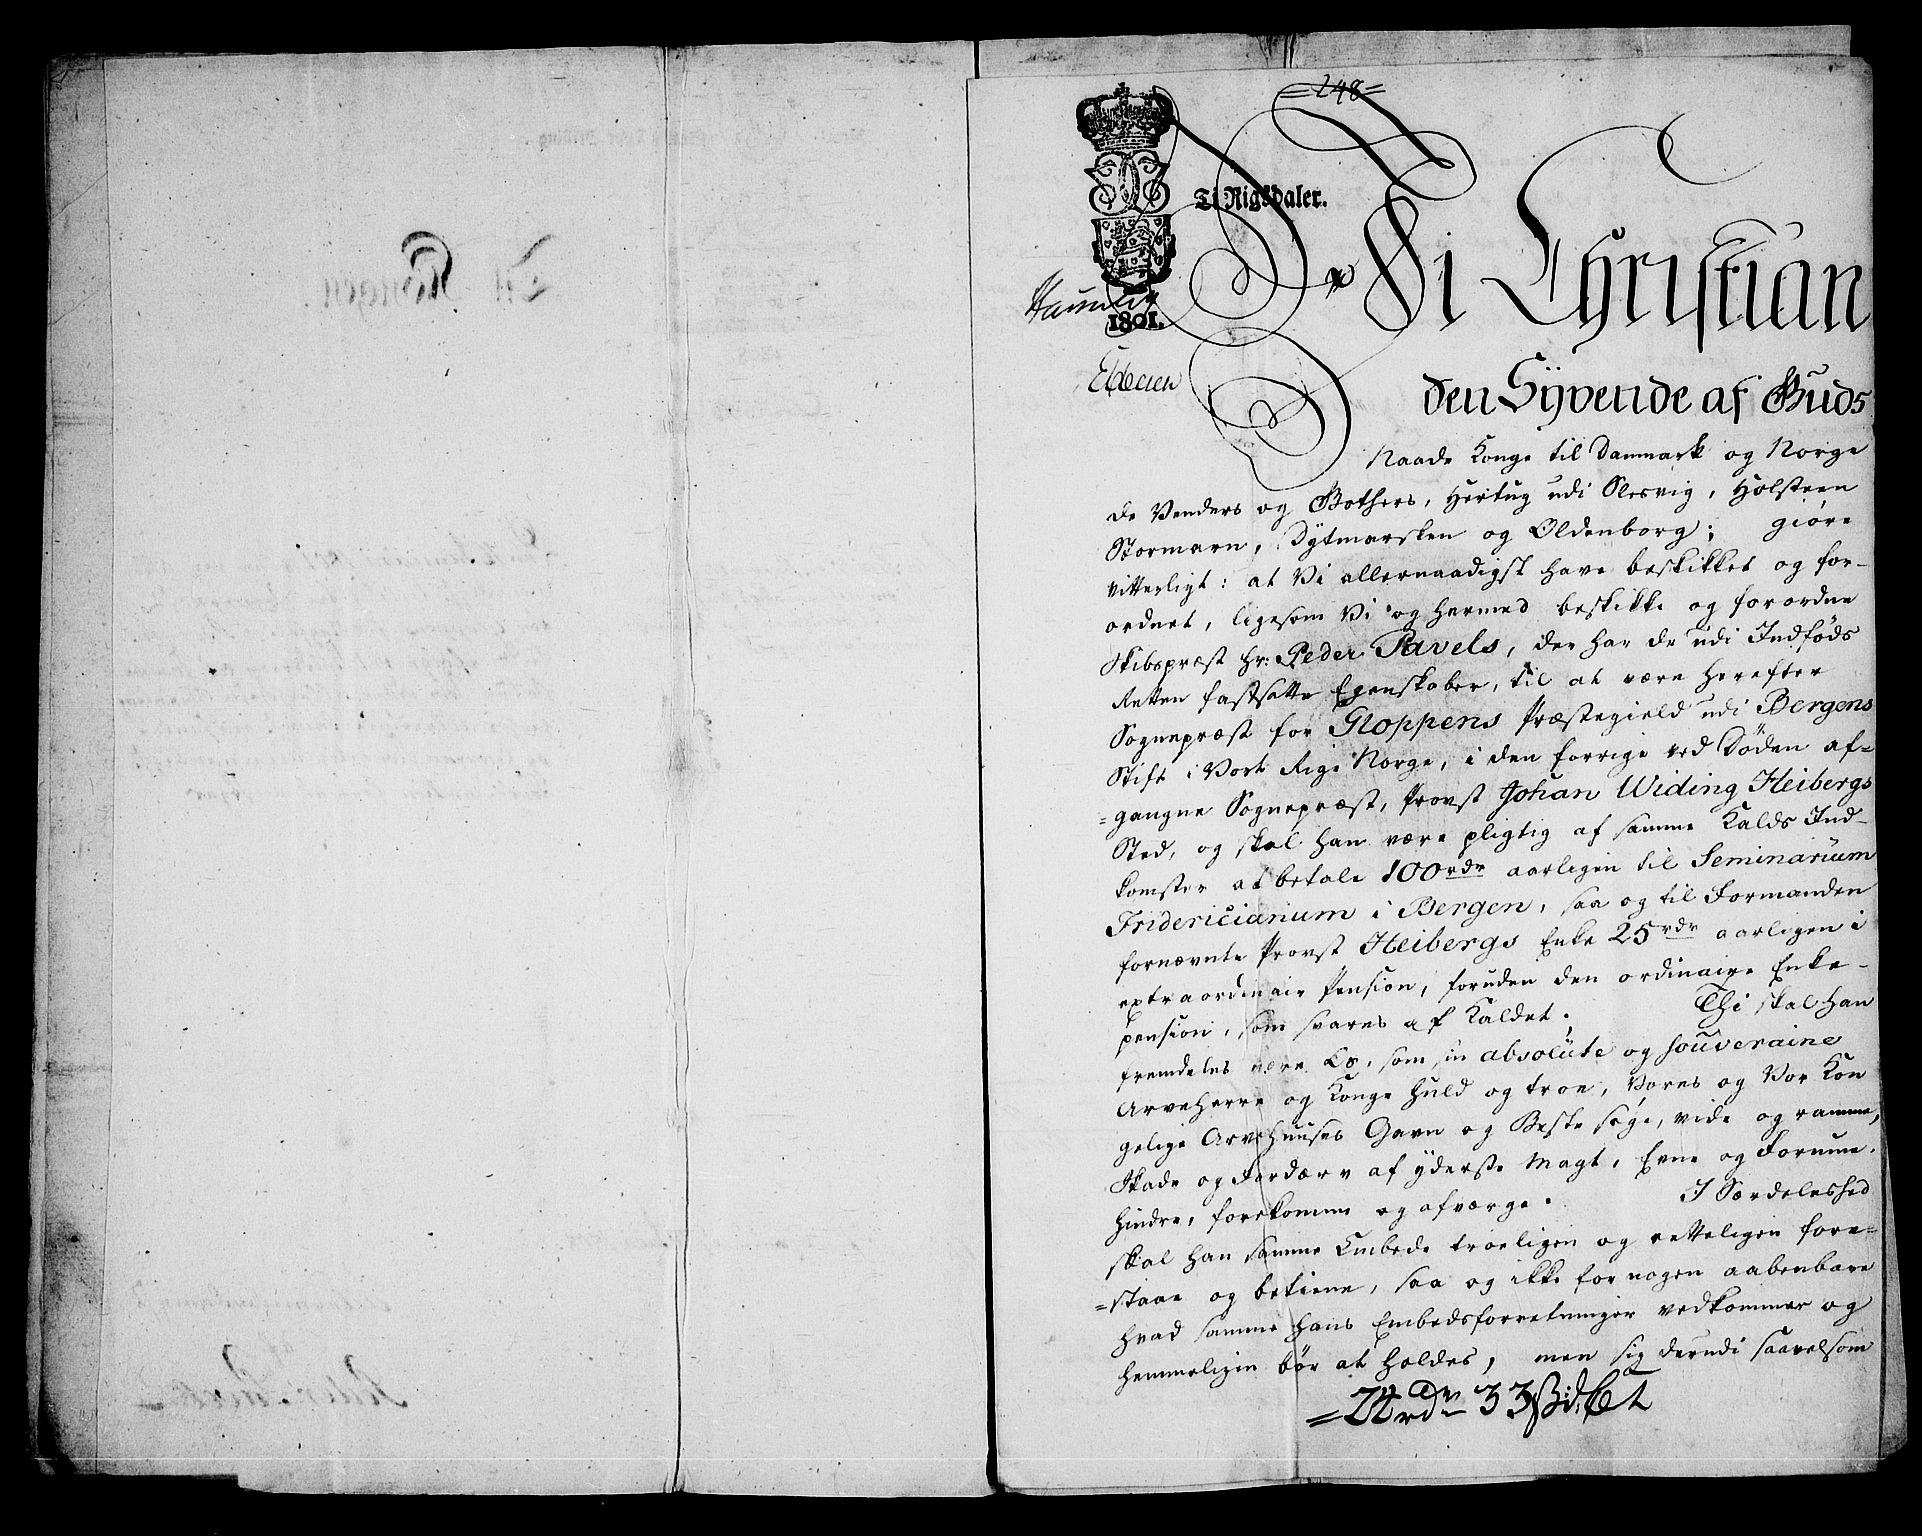 =248=
Ti Rigsdaler.
1801.
Vi Christian
den Syvende af Guds
Naade Konge til Danmark og Norge
de Venders og Gothers, Hertug udi Slesvig, Holsteen
Stormarn, Dytmarsken og Oldenborg; giøre
vitterligt: at Vi allernaadigst have beskikket og for-
ordnet, ligesom Vi og hermed beskikke og forordne
Skibspræst Hr: Peder Pavels, der har de udi Indføds
Retten fastsatte Egenskaber, til at være herefter
Sognepræst for Gloppens Præstegield udi Bergens
Stift i Vort Rige Norge, i den forrige ved Døden af-
=gangne Sognepræst, Provst Johan Widing Heibergs
Sted, og skal han være pligtig af samme Kalds Ind-
komster at betale 100 rdr aarligen til Seminarium
Fridericianum i Bergen, saa og til Formanden
fornævnte Provst Heibergs Enke 25 rdr aarligen i
extraordinair Pension, foruden den ordinaire Enke-
pension, som svares af Kaldet. Thi skal han
fremdeles være Os, som sin absolute og souveraine
Arveherre og Konge huld og troe, Vores og Vor Kon
gelige Arvehuuses Gavn og Beste søge, vide og ramme,
Skade og Fordærv af yderste Magt, Evne og Formue
hindre, forekomme og afværge. I Særdeleshed
skal han samme Embede troeligen og retteligen fore-
=staae og betiene, saa og ikke for nogen aabenbare
hvad samme hans Embedsforretninger vedkommer og
hemmeligen bør at holdes, men sig derudi saavelsom
=24 rdr 33 ß